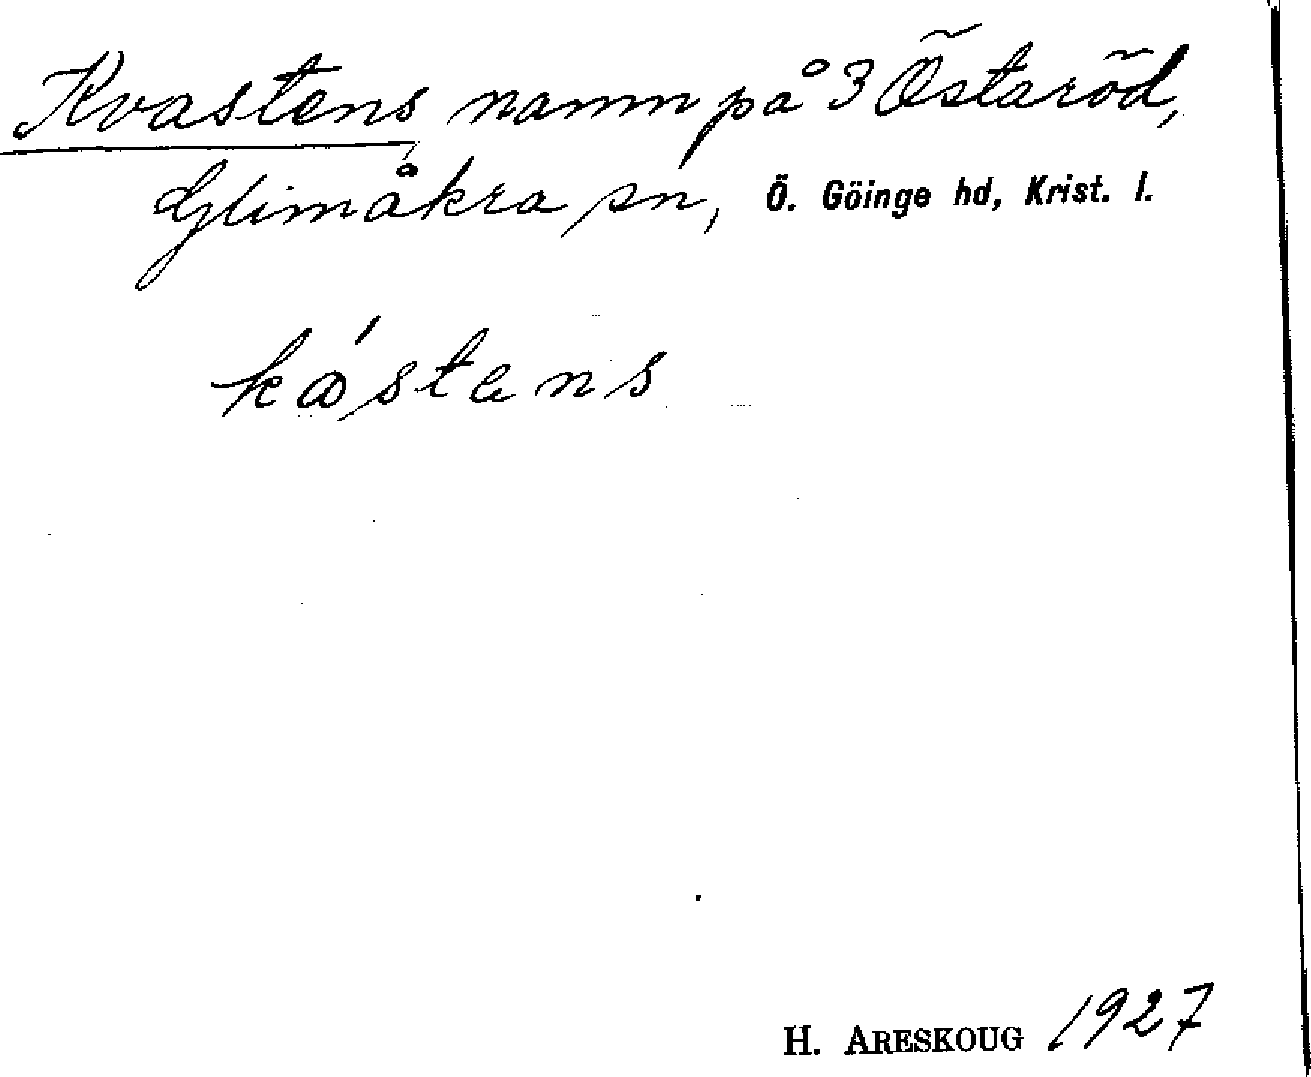 Kvastens namn på 3 Östaröd,
Glimåkra sn, Ö. Göinge hd, Krist. l.
kástens
H. ARESKOUG 1927